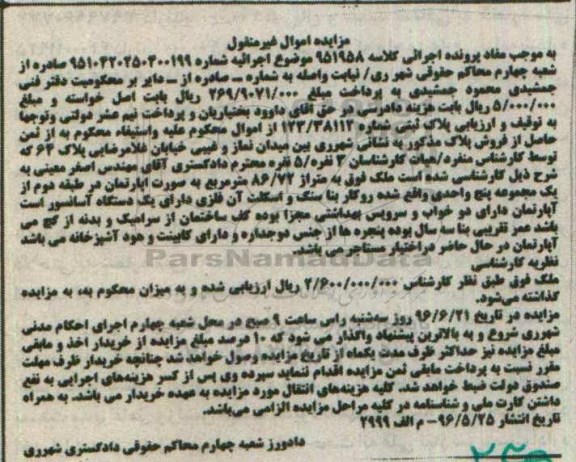 مزایده اموال غیرمنقول
به موجب مفاد پرونده اجرائی کلاسه 951958 موضوع اجرائیه شماره 9510420250400199 صادره از
شعبه چهارم محاکم حقوقی شهر ری/ نیابت واصله به شماره ـ صادره از ـ دایر بر محکومیت دفتر فنی
جمشیدی محمود جمشیدی به پرداخت مبلغ 269/9071/000 ریال بابت اصل خواسته و مبلغ
5/000/000 ریال بابت هزینه دادرسی در حق آقای داوود بختیاریان و پرداخت نیم عشر دولتی وتوجها
به توقیف و ارزیابی پلاک ثبتی شماره 123/38113 از اموال محکوم علیه واستیفاء محکوم به از ثمن
حاصل از فروش پلاک مذکور به نشانی شهرری بین میدان نماز و غیبی خیابان غلامرضایی پلاک 64 که
توسط کارشناس منفرد/هیات کارشناسان 3 نفره/5 نفره محترم دادگستری آقای مهندس اصغر معینی به
شرح ذیل کارشناسی شده است ملک فوق به متراژ 86/72 مترمربع به صورت آپارتمان در طبقه دوم از
یک مجموعه پنج واحدی واقع شده روکار بنا سنگ و اسکلت آن فلزی دارای یک دستگاه آسانسور است
آپارتمان دارای دو خواب و سرویس بهداشتی مجزا بوده کف ساختمان از سرامیک و بدنه از گچ می
باشد عمر تقریبی بنا سه سال بوده پنجره ها از جنس دوجداره و دارای کابینت و هود آشپزخانه می باشد
آپارتمان در حال حاضر دراختیار مستاجر می باشد.
ParsNamadData
نظریه کارشناسی
ملک فوق طبق نظر کارشناس 2/600/000/000 ریال ارزیابی شده و به میزان محکوم به، به مزایده
گذاشته می‌شود.
مزایده در تاریخ 96/6/21 روز سه‌شنبه راس ساعت 9 صبح در محل شعبه چهارم اجرای احکام مدنی
شهرری شروع و به بالاترین پیشنهاد واگذار می شود که 10 درصد مبلغ مزایده از خریدار اخذ و مابقی
مبلغ مزایده نیز حداکثر ظرف مدت یکماه از تاریخ مزایده وصول خواهد شد چنانچه خریدار ظرف مهلت
مقرر نسبت به پرداخت مابقی ثمن مزایده اقدام ننماید سپرده وی پس از کسر هزینه‌های اجرایی به نفع
صندوق دولت ضبط خواهد شد. کلیه هزینه‌های انتقال مورد مزایده به عهده خریدار می باشد. به همراه
داشتن کارت ملی و شناسنامه در کلیه مراحل مزایده الزامی می‌باشد.
تاریخ انتشار 96/5/25 - م الف 2999
دادورز شعبه چهارم محاکم حقوقی دادگستری شهرری